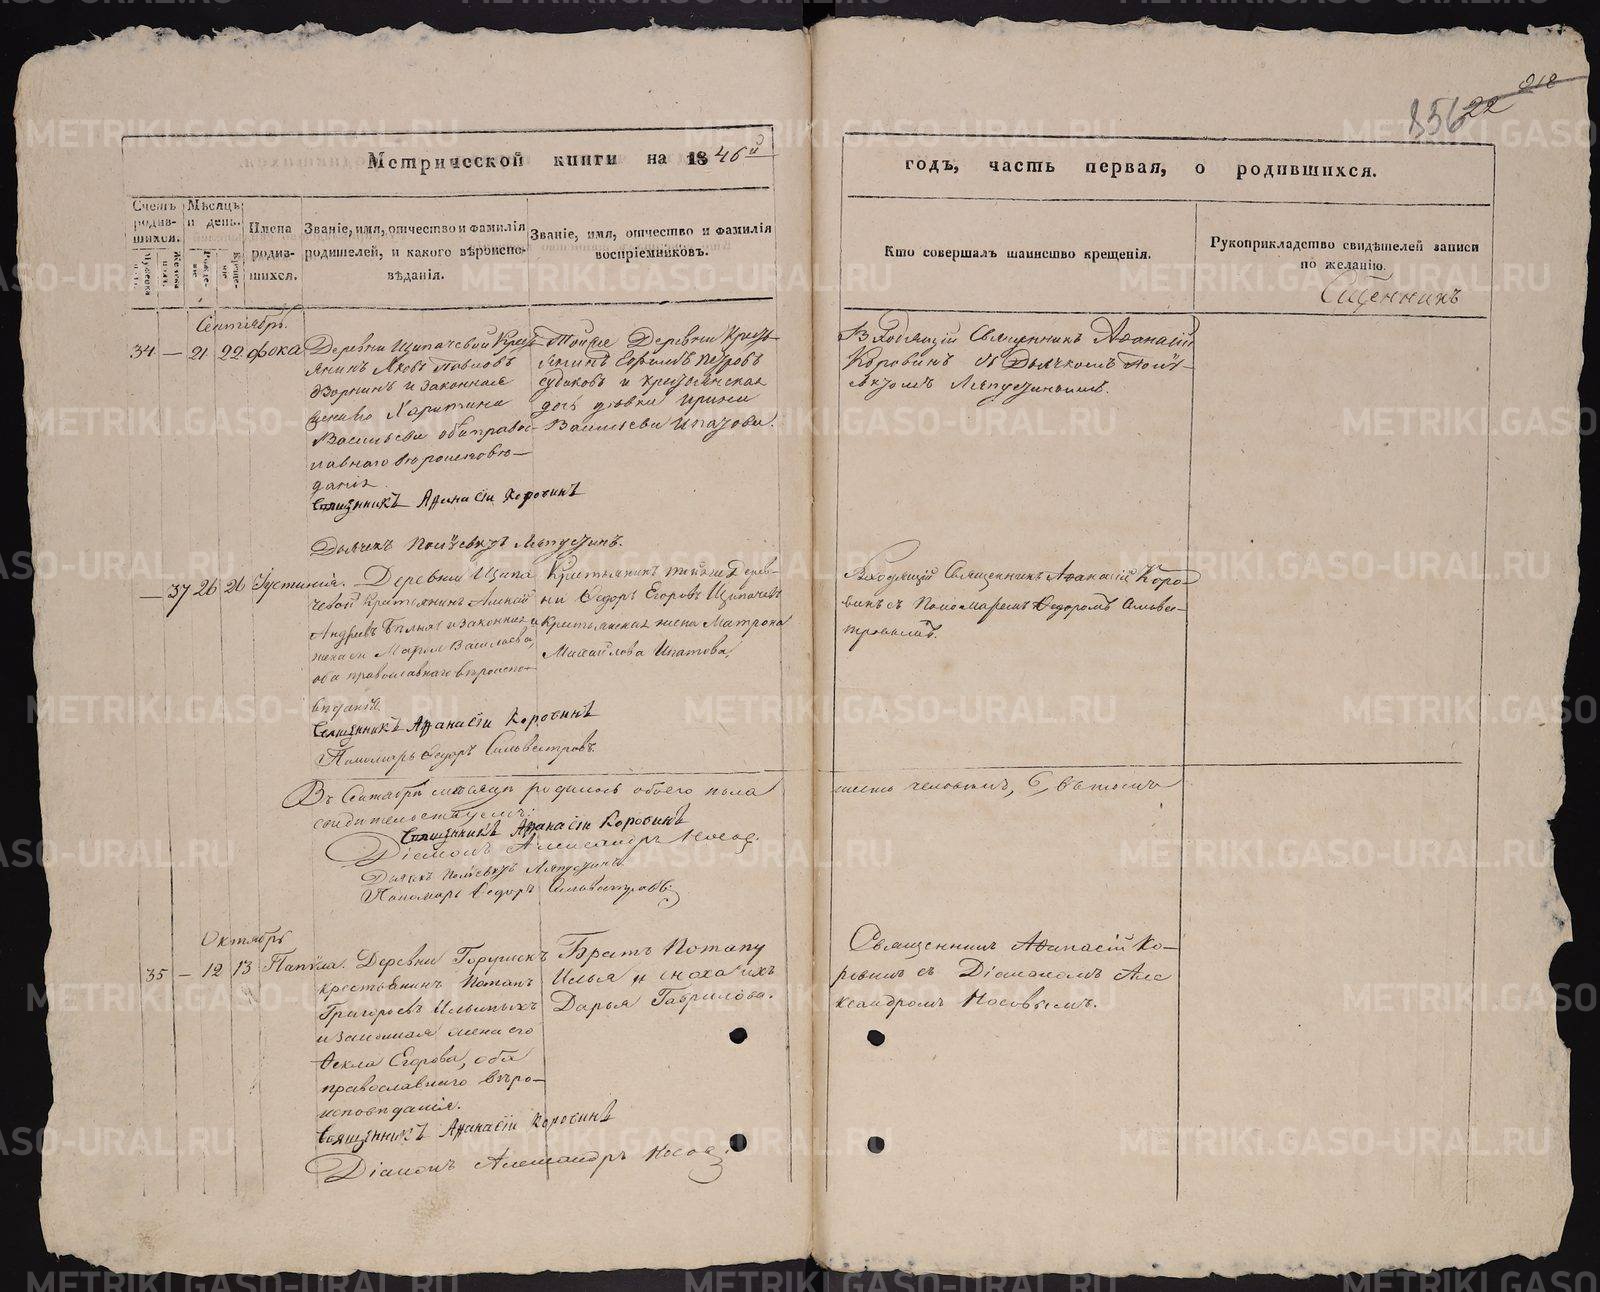 856 22 218
Метрической книги на 1846й
годъ, часть первая, о родившихся.
Счетъ родив-шихся.
Мужеска полъ.
Женска полъ.
Мѣсяцъ и день.
Рожде-нiе.
Креще-нiе.
Имена родив-шихся.
Званіе, имя, отчество и фамилія родителей, и какого вѣроиспо-вѣданія.
Званіе, имя, отчество и фамилія воспріемниковъ.
Кто совершалъ таинство крещенія.
Рукоприкладство свидѣтелей записи по желанію.
Сщенникъ
Сентябрь.
34 — 21 22 Фока
Деревни Щипачевой Крес-
янинъ Яковъ Павловъ
и законная
жена его Харитина
Васильева оба правос-
лавнаго вѣроисповѣ-
данія.
Священникъ Афанасій Коровинъ
Дьячекъ Ляпустинъ.
Тойже Деревни Крест-
янинъ Ефримъ Петровъ
и крестьянская
дочь дѣвка Ирина
Васильева Ипатова.
Входящій Священникъ Афанасій
Коровинъ съ Дьячкомъ
Ляпустинымъ.
— 37 26 26 Іустинія.
Деревни Щипа
чевой Крестьянинъ Алексѣй
Андреевъ и законная
жена ево Марья Васильева,
оба православнаго вѣроиспо-
вѣданія.
Священникъ Афанасій Коровинъ
Пономарь Ѳедоръ Сильвестровъ.
Крестьянинъ тойже Дерев-
ни Ѳедоръ Егоровъ Щипачевъ
и крестьянская жена Матрона
Михайлова Ипатова,
Входящій Священникъ Афанасій Коро-
винъ съ Пономаремъ Ѳедоромъ Сильве-
стровымъ.
Въ Сентябрѣ мѣсяцѣ родилось обоего пола
шесть человѣкъ, 6, въ томъ
свидѣтельствуемъ:
Священникъ Афанасій Коровинъ
Діаконъ Александръ Носовъ.
Дьячекъ Ляпустинъ
Пономарь Ѳедоръ Сильвестровъ.
Октябрь
35 — 12 13
Деревни
крестьянинъ Потапъ
Григорьевъ Ильиныхъ
и законная жена его
Ѳекла Егорова, оба
православнаго вѣро-
исповѣданія.
Священникъ Афанасій Коровинъ
Діаконъ Александръ Носовъ.
Братъ Потапу
Илья и сноха ихъ
Дарья Гаврилова.
Священникъ Афанасій Ко-
ровинъ съ Діакономъ Але
ксандромъ Носовымъ.